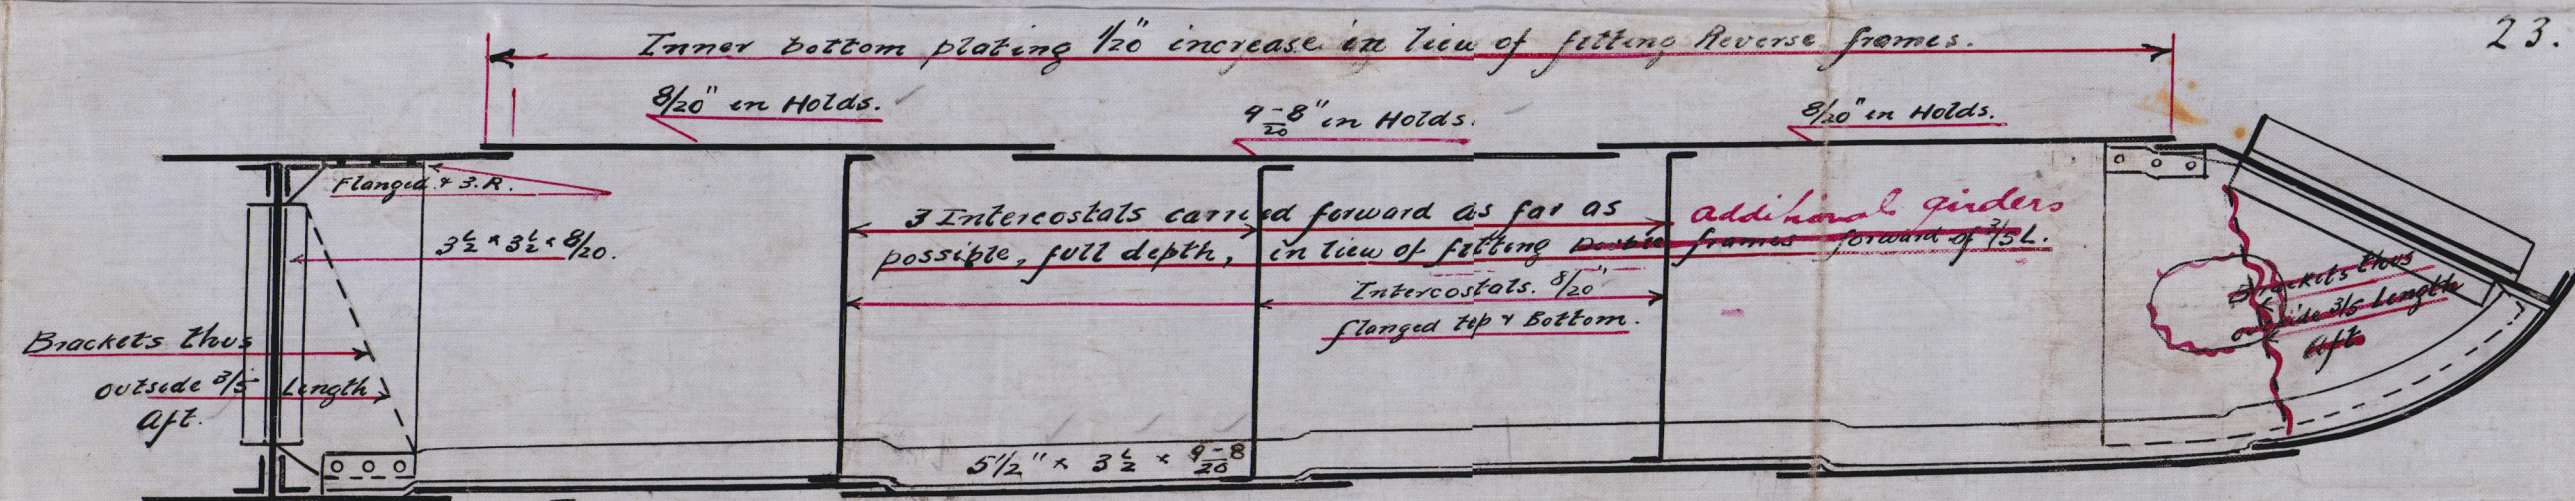 23.
Inner bottom plating 1/20" increase in lieu of fitting Reverse frames.
8/20" in Holds.
9-8/20" in Holds.
8/20" in Holds.
Flanged & 3.R.
3½ × 3½ × 8/20.
3 Intercostals carried forward as far as additional girders
possible, full depth, in lieu of fitting Double frames forward of 3/5 L.
Intercostals. 8/20"
flanged top & Bottom.
Brackets thus
outside 3/5 Length
Aft.
Brackets thus
outside 3/5 Length
Aft
5½" × 3½ × 9-8/20